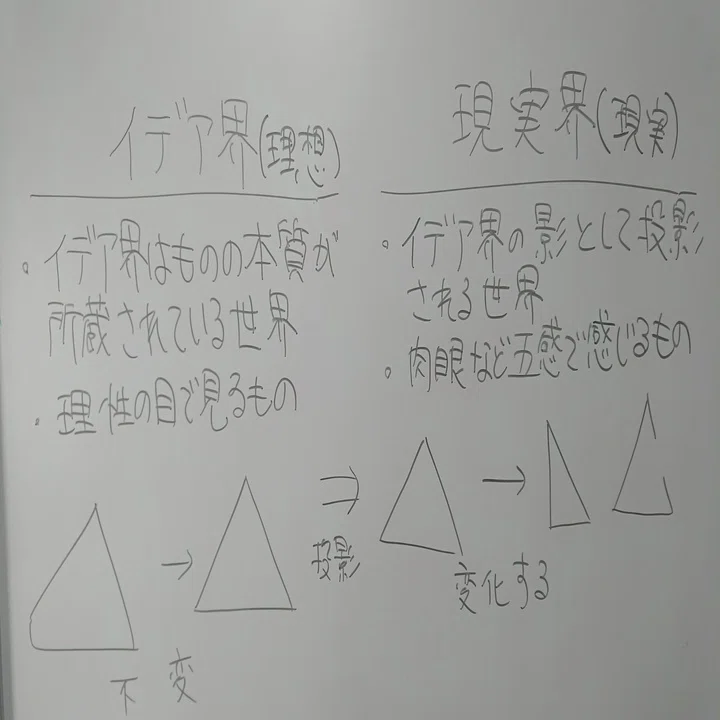 イデア界(理想)
・イデア界はものの本質が
所蔵されている世界
・理性の目で見るもの
→
不変
⇒
投影
現実界(現実)
・イデア界の影として投影
される世界
・肉眼など五感で感じるもの
→
変化する